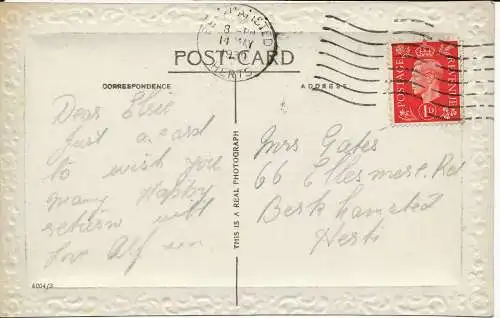 8 - PM
14 MAY
HERTS.
POST-CARD
CORRESPONDENCE
ADDRESS
POSTAGE
REVENUE
1D
Dear Elsie
Just a card
to wish you
many Happy
return with
love Alf
THIS IS A REAL PHOTOGRAPH
Mrs Gates
66 Ellesmere Rd
Berkhamsted
Herts